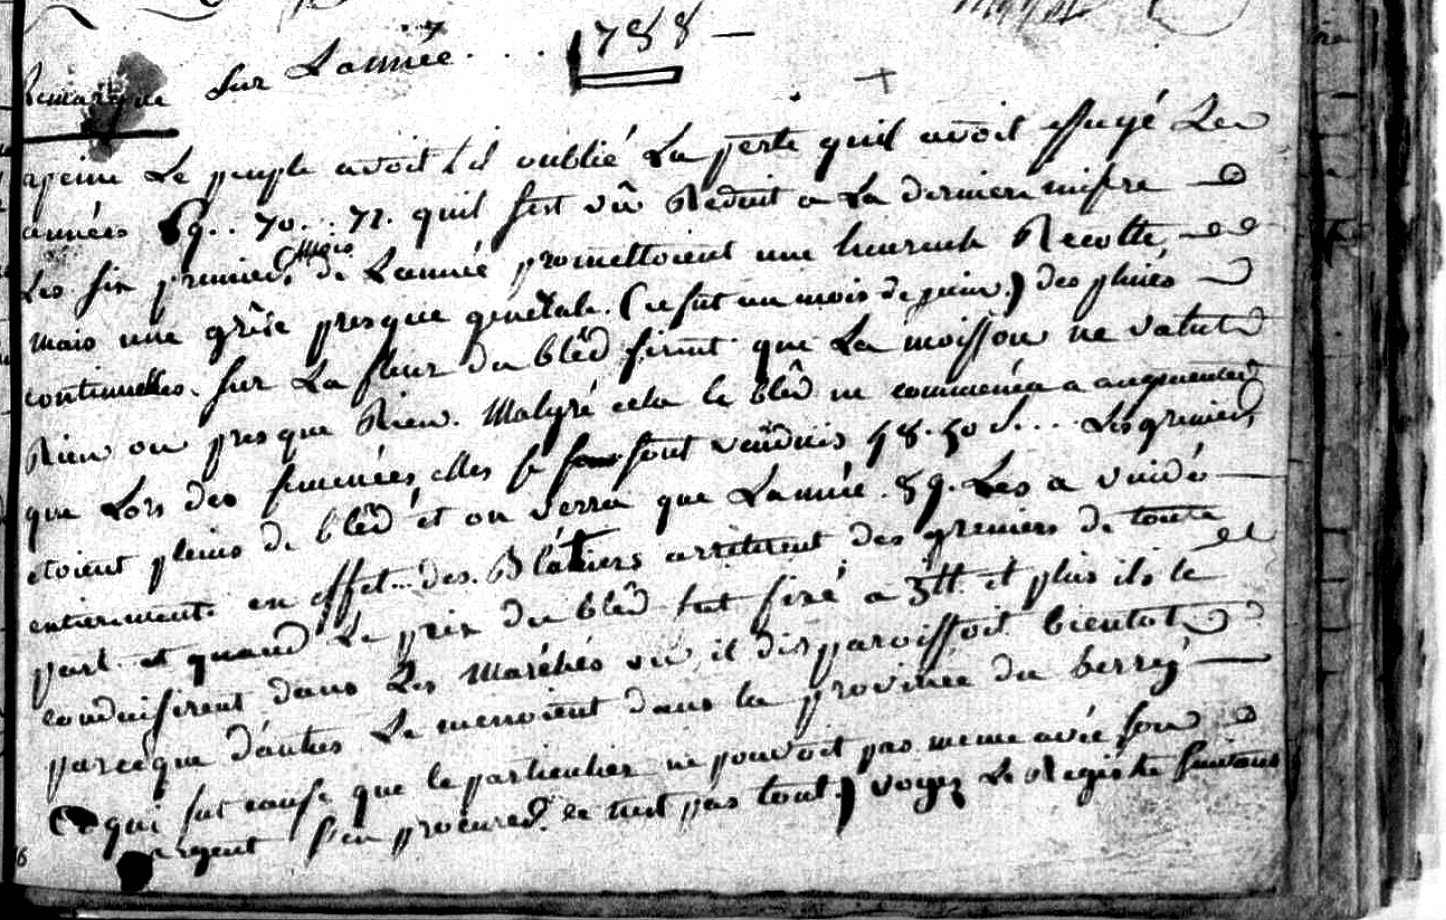 Remarque sur Lannée . . . 1788 —
apeine Le peuple avoit til oublié La perte quil avoit essuyé Les
années 69.. 70.. 71. quil sest vû Reduit a La derniere misere
Les six premiers mois de Lannée promettoient une heureuse Recolte,
mais une grêle presque générale. (ce fut au mois de juin.) des pluies
continuelles. sur La fleur du blêd firent que La moisson ne valut
Rien ou presque Rien. Malgré cela le blêd ne commença a augmenter
que Lors des semences, elles se sont vendues 48. 50 s... Les greniers
etoient pleins de blêd et on verra que Lannée . 89. Les a vuidé
entierement. en effet... des. Blâtiers arrêterent des greniers de toute
part et quand Le prix du blêd fut fixé a 3tt. et plus ils le
conduisirent dans Les Marchés ou il disparoissoit bientot
parceque dautres Le menoient dans la province du berry
Ce qui fut cause que le particulier ne pouvoit pas meme avec son
argent s'en procurer. ce nest pas tout.) voyez Le Registre suivant